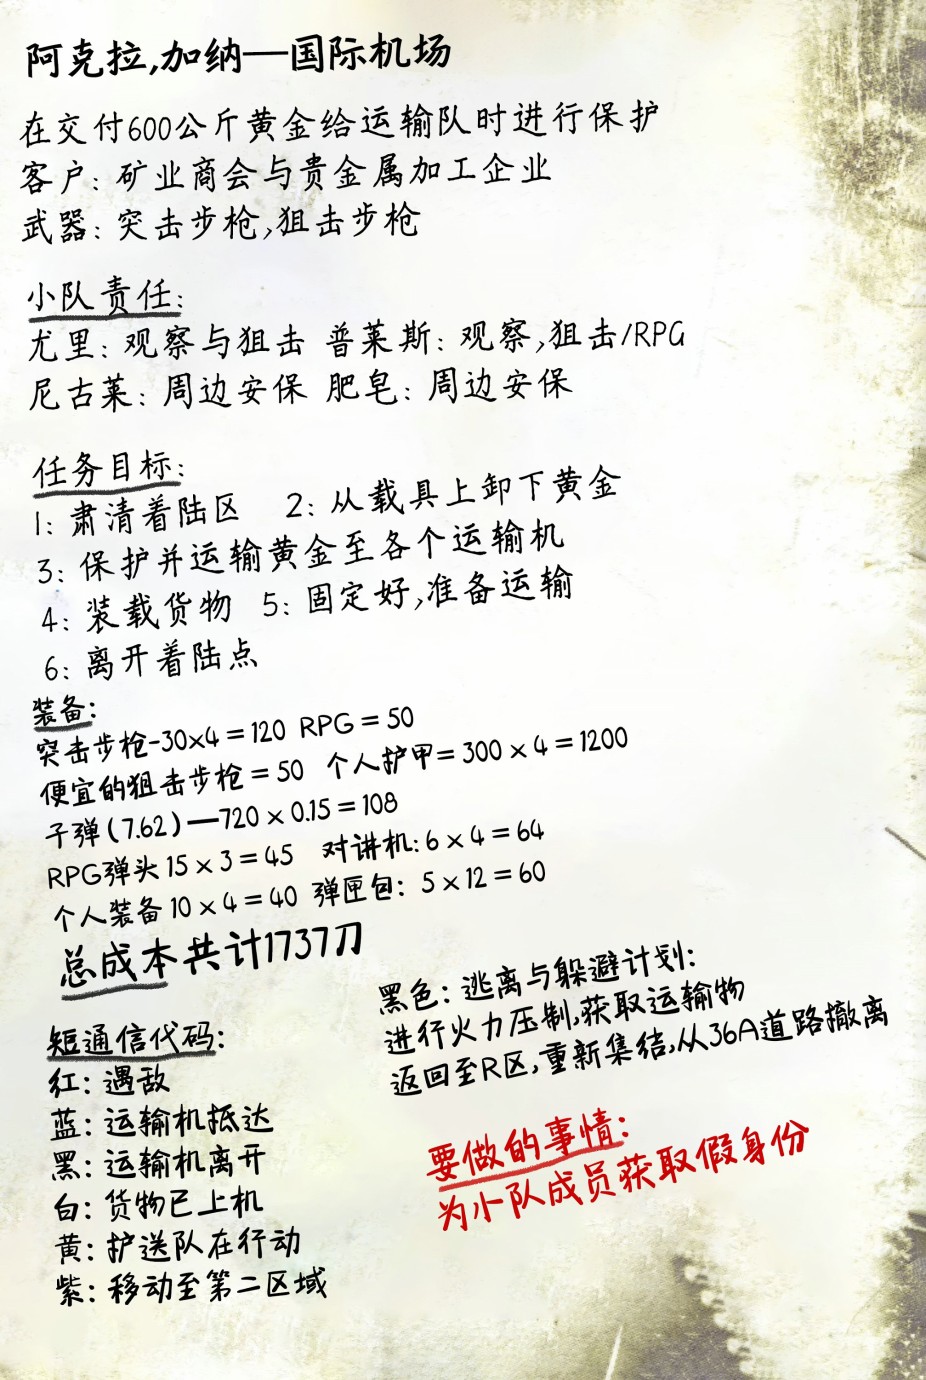 阿克拉,加纳—国际机场
在交付600公斤黄金给运输队时进行保护
客户: 矿业商会与贵金属加工企业
武器: 突击步枪,狙击步枪
小队责任:
尤里: 观察与狙击 普莱斯: 观察,狙击/RPG
尼古莱: 周边安保 肥皂: 周边安保
任务目标:
1: 肃清着陆区 2: 从载具上卸下黄金
3: 保护并运输黄金至各个运输机
4: 装载货物 5: 固定好,准备运输
6: 离开着陆点
装备:
突击步枪-30x4=120 RPG=50
便宜的狙击步枪=50 个人护甲=300x4=1200
子弹(7.62)—720x0.15=108
RPG弹头15x3=45 对讲机:6x4=64
个人装备10x4=40 弹匣包: 5x12=60
总成本共计1737刀
黑色: 逃离与躲避计划:
进行火力压制,获取运输物
返回至R区,重新集结,从36A道路撤离
短通信代码:
红: 遇敌
蓝: 运输机抵达
黑: 运输机离开
白: 货物已上机
黄: 护送队在行动
紫: 移动至第二区域
要做的事情:
为小队成员获取假身份